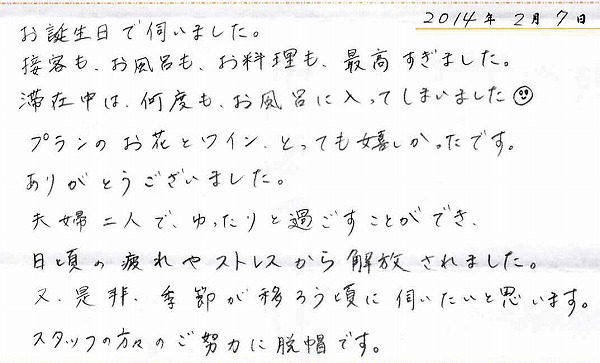 2014年 2月 7日
お誕生日で伺いました。
接客も、お風呂も、お料理も、最高すぎました。
滞在中は、何度も、お風呂に入ってしまいました☺
プランのお花とワイン、とっても嬉しかったです。
ありがとうございました。
夫婦二人で、ゆったりと過ごすことができ、
日頃の疲れやストレスから解放されました。
又、是非、季節が移ろう頃に伺いたいと思います。
スタッフの方々のご努力に脱帽です。